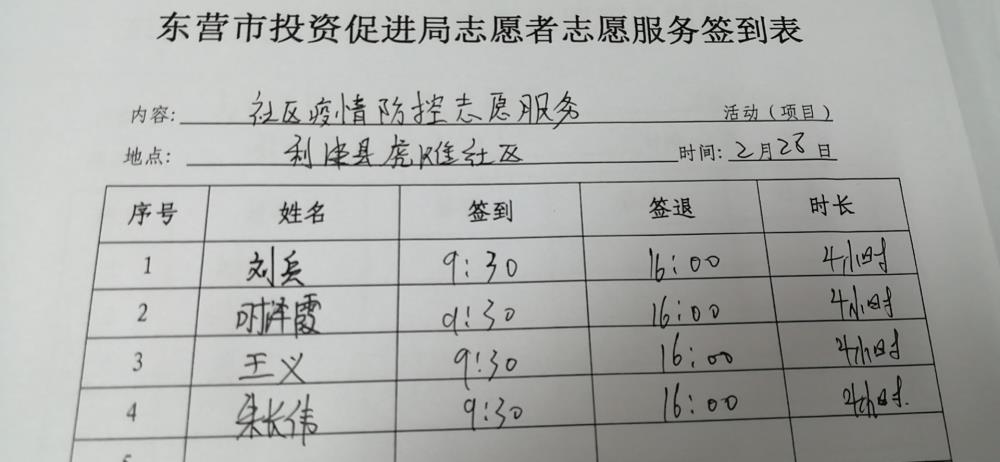 东营市投资促进局志愿者志愿服务签到表
内容: 社区疫情防控志愿服务 活动（项目）
地点: 利津县虎滩社区 时间: 2月28日
序号 姓名 签到 签退 时长
1 刘兵 9:30 16:00 4小时
2 时泽霞 9:30 16:00 4小时
3 王义 9:30 16:00 4小时
4 朱长伟 9:30 16:00 4小时